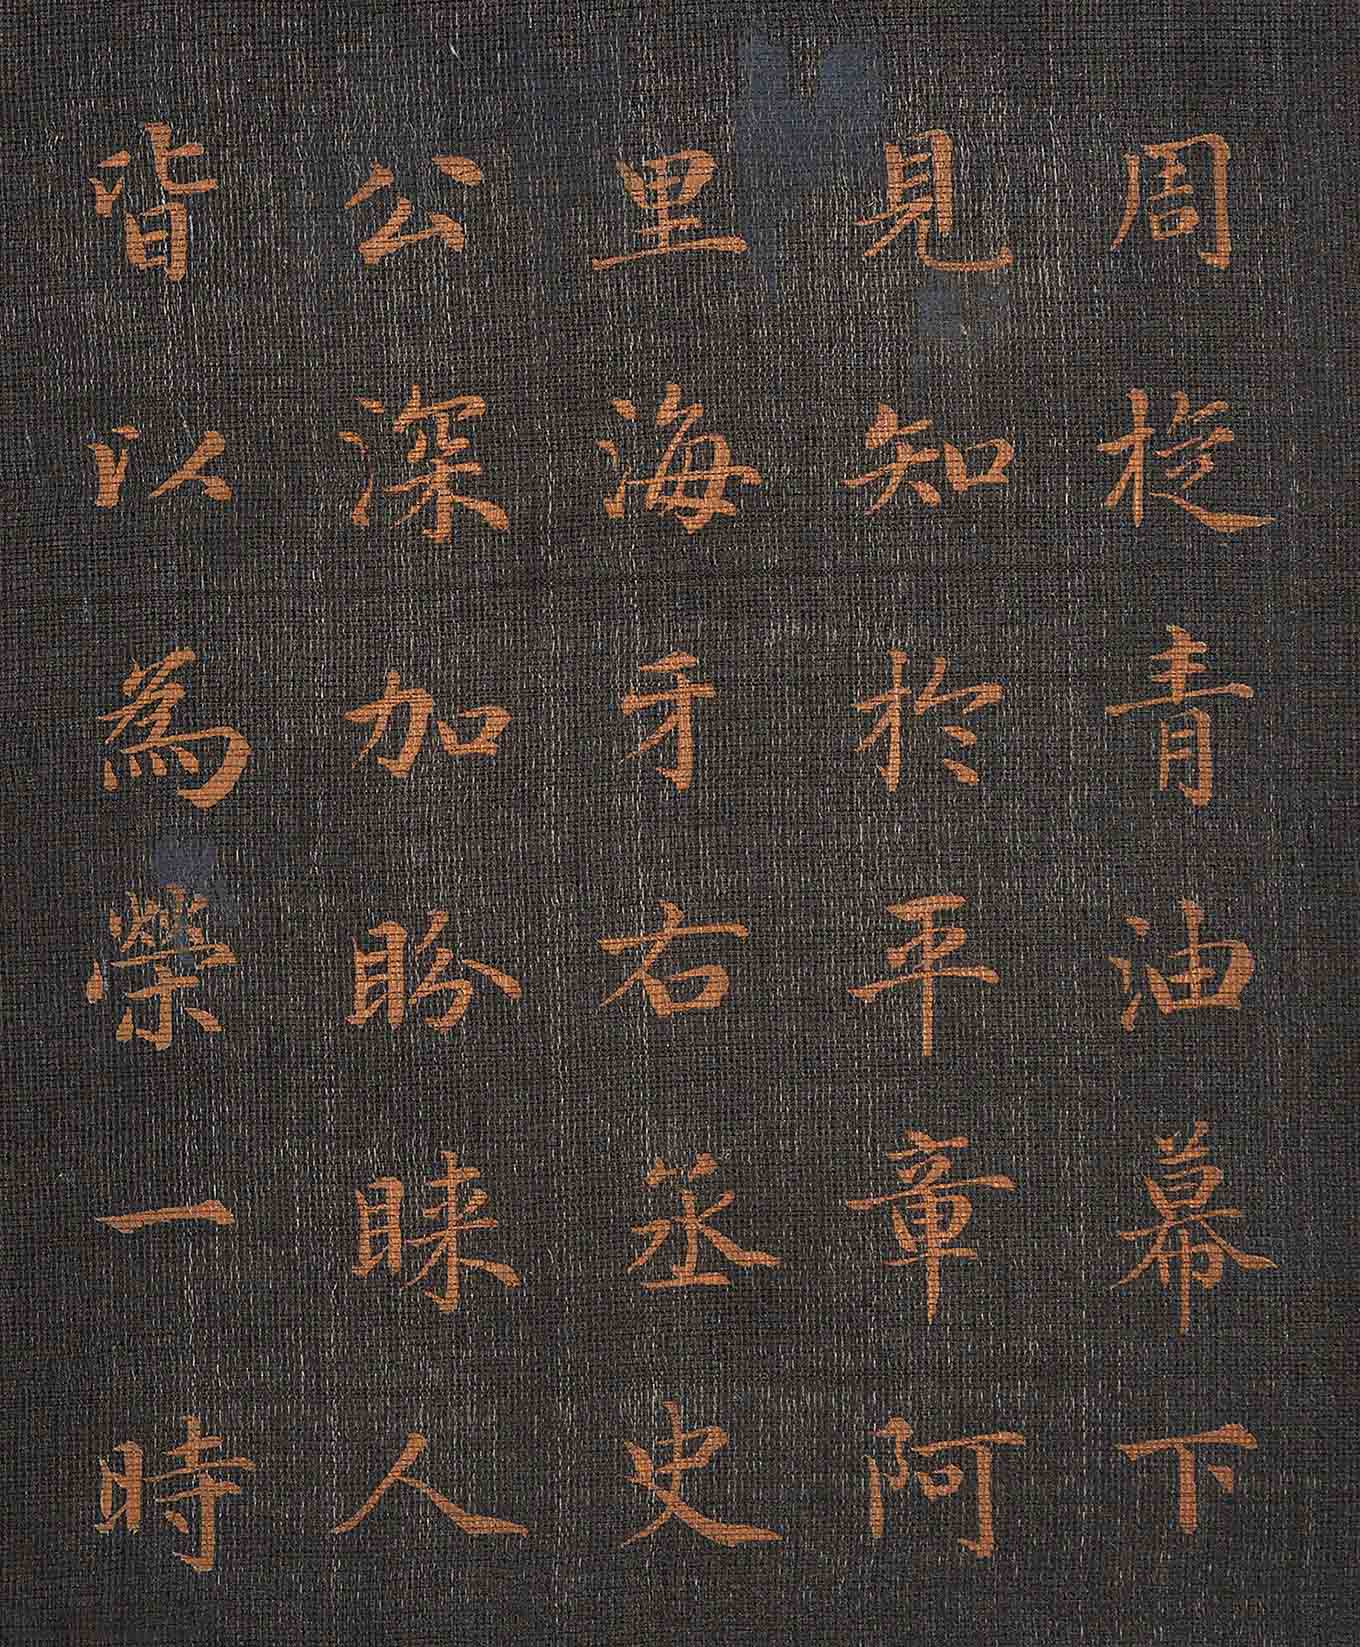 周旋青油幕下
見知於平章阿
里海牙右丞史
公深加盼睞人
皆以為榮一時